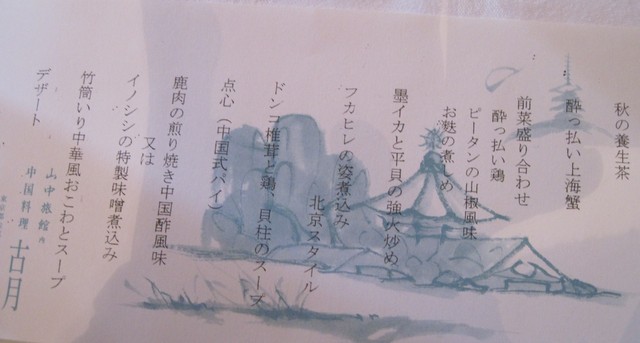 秋の養生茶
酔っ払い上海蟹
前菜盛り合わせ
酔っ払い鶏
ピータンの山椒風味
お麩の煮しめ
墨イカと平貝の強火炒め
フカヒレの姿煮込み
北京スタイル
ドンコ椎茸と鶏、貝柱のスープ
点心（中国式パイ）
鹿肉の煎り焼き中国酢風味
又は
イノシシの特製味噌煮込み
竹筒いり中華風おこわとスープ
デザート
山中旅館内
中国料理 古月